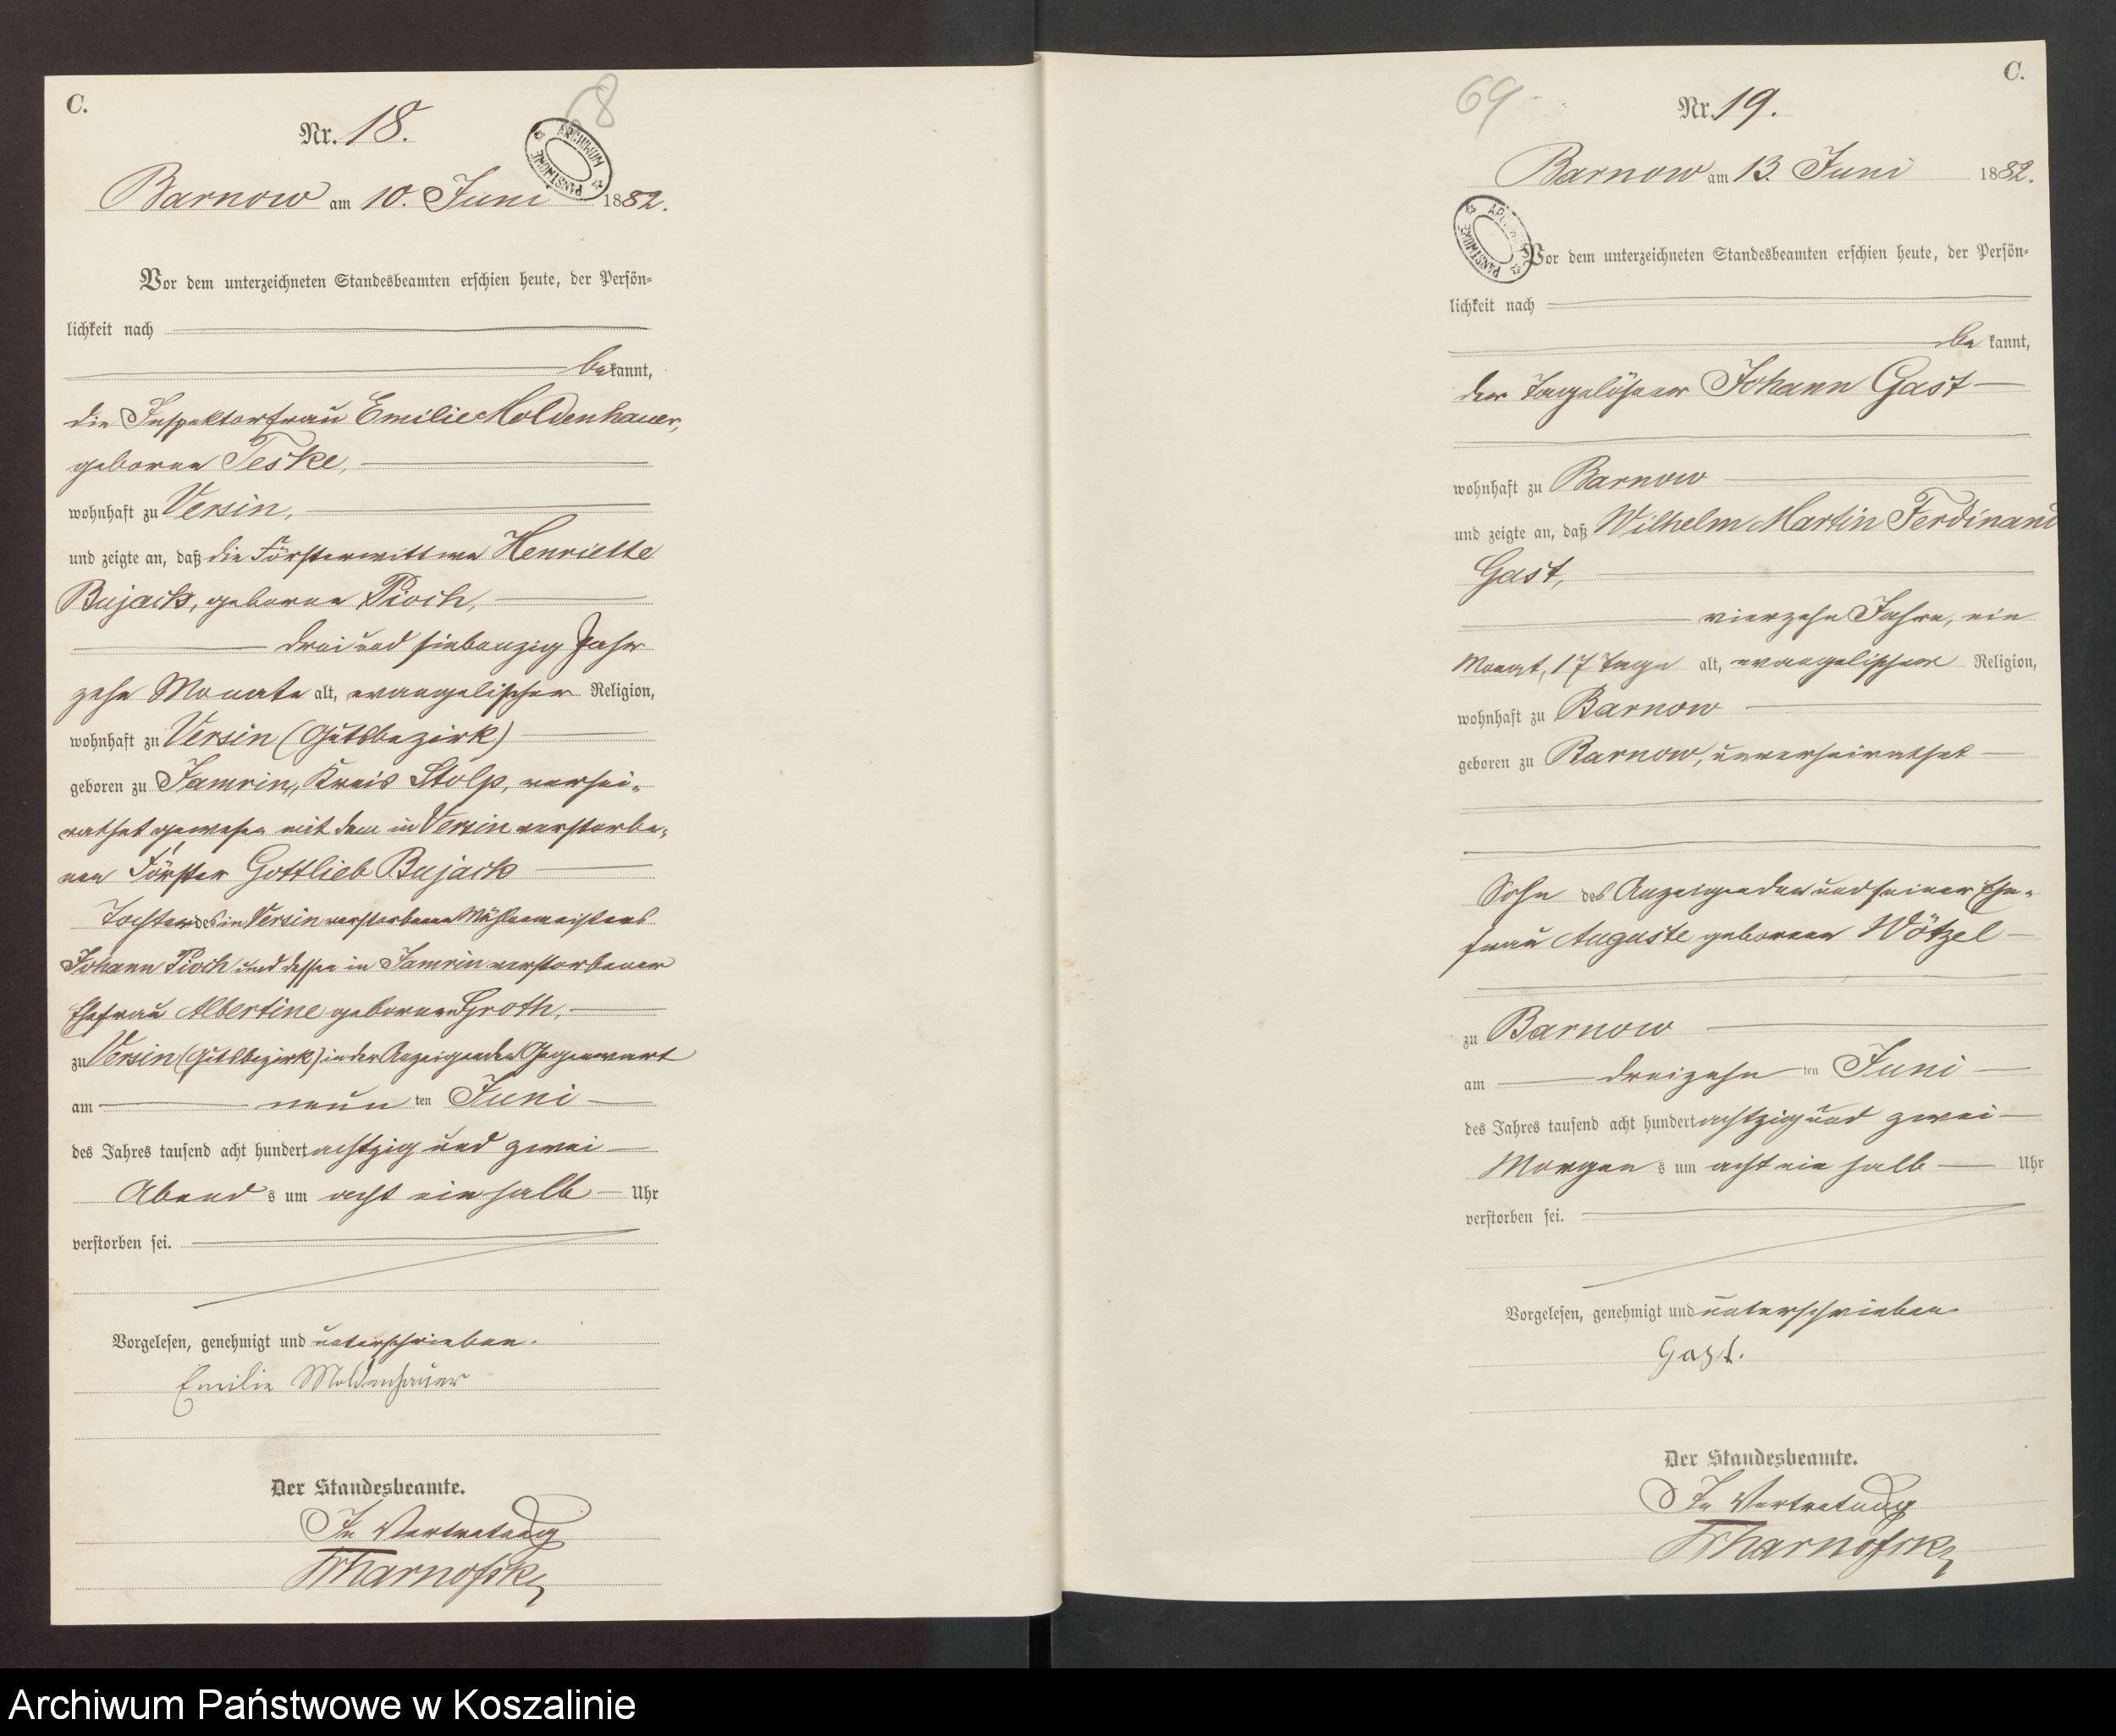 C.
68
Nr. 18.
ARCHIWUM PAŃSTWOWE
Barnow am 10. Juni 1882.
Vor dem unterzeichneten Standesbeamten erschien heute, der Persön-
lichkeit nach
bekannt,
die Inspektorfrau Emilie Moldenhauer,
geborne Teske,
wohnhaft zu Versin,
und zeigte an, daß die Försterwittwe Henriette
Bujack, geborne Pioch,
drei und siebenzig Jahr
zehn Monate alt, evangelischer Religion,
wohnhaft zu Versin (Gutsbezirk)
geboren zu Jamrin, Kreis Stolp, verhei-
rathet gewesen mit dem in Versin verstorbe-
nen Förster Gottlieb Bujack
Tochter des in Versin verstorbenen Mühlenmeisters
Johann Pioch und dessen in Jamrin verstorbener
Ehefrau Albertine gebornen Groth,
zu Versin (Gutsbezirk) in der Anzeigenden Gegenwart
am neun ten Juni
des Jahres tausend acht hundert achtzig und zwei
Abend s um acht ein halb Uhr
verstorben sei.
Vorgelesen, genehmigt und unterschrieben.
Emilie Moldenhauer
Der Standesbeamte.
In Vertretung
C.
69
Nr. 19.
Barnow am 13. Juni 1882.
ARCHIWUM PAŃSTWOWE
Vor dem unterzeichneten Standesbeamten erschien heute, der Persön-
lichkeit nach
be kannt,
der Tagelöhner Johann Gast
wohnhaft zu Barnow
und zeigte an, daß Wilhelm Martin Ferdinand
Gast,
vierzehn Jahre, ein
Monat, 17 Tage alt, evangelischer Religion,
wohnhaft zu Barnow
geboren zu Barnow, unverheirathet
Sohn des Anzeigenden und seiner Ehe-
frau Auguste geborenen Wötzel
zu Barnow
am dreizehn ten Juni
des Jahres tausend acht hundert achtzig und zwei
Morgen s um acht ein halb Uhr
verstorben sei.
Vorgelesen, genehmigt und unterschrieben
Gast.
Der Standesbeamte.
In Vertretung
Archiwum Państwowe w Koszalinie